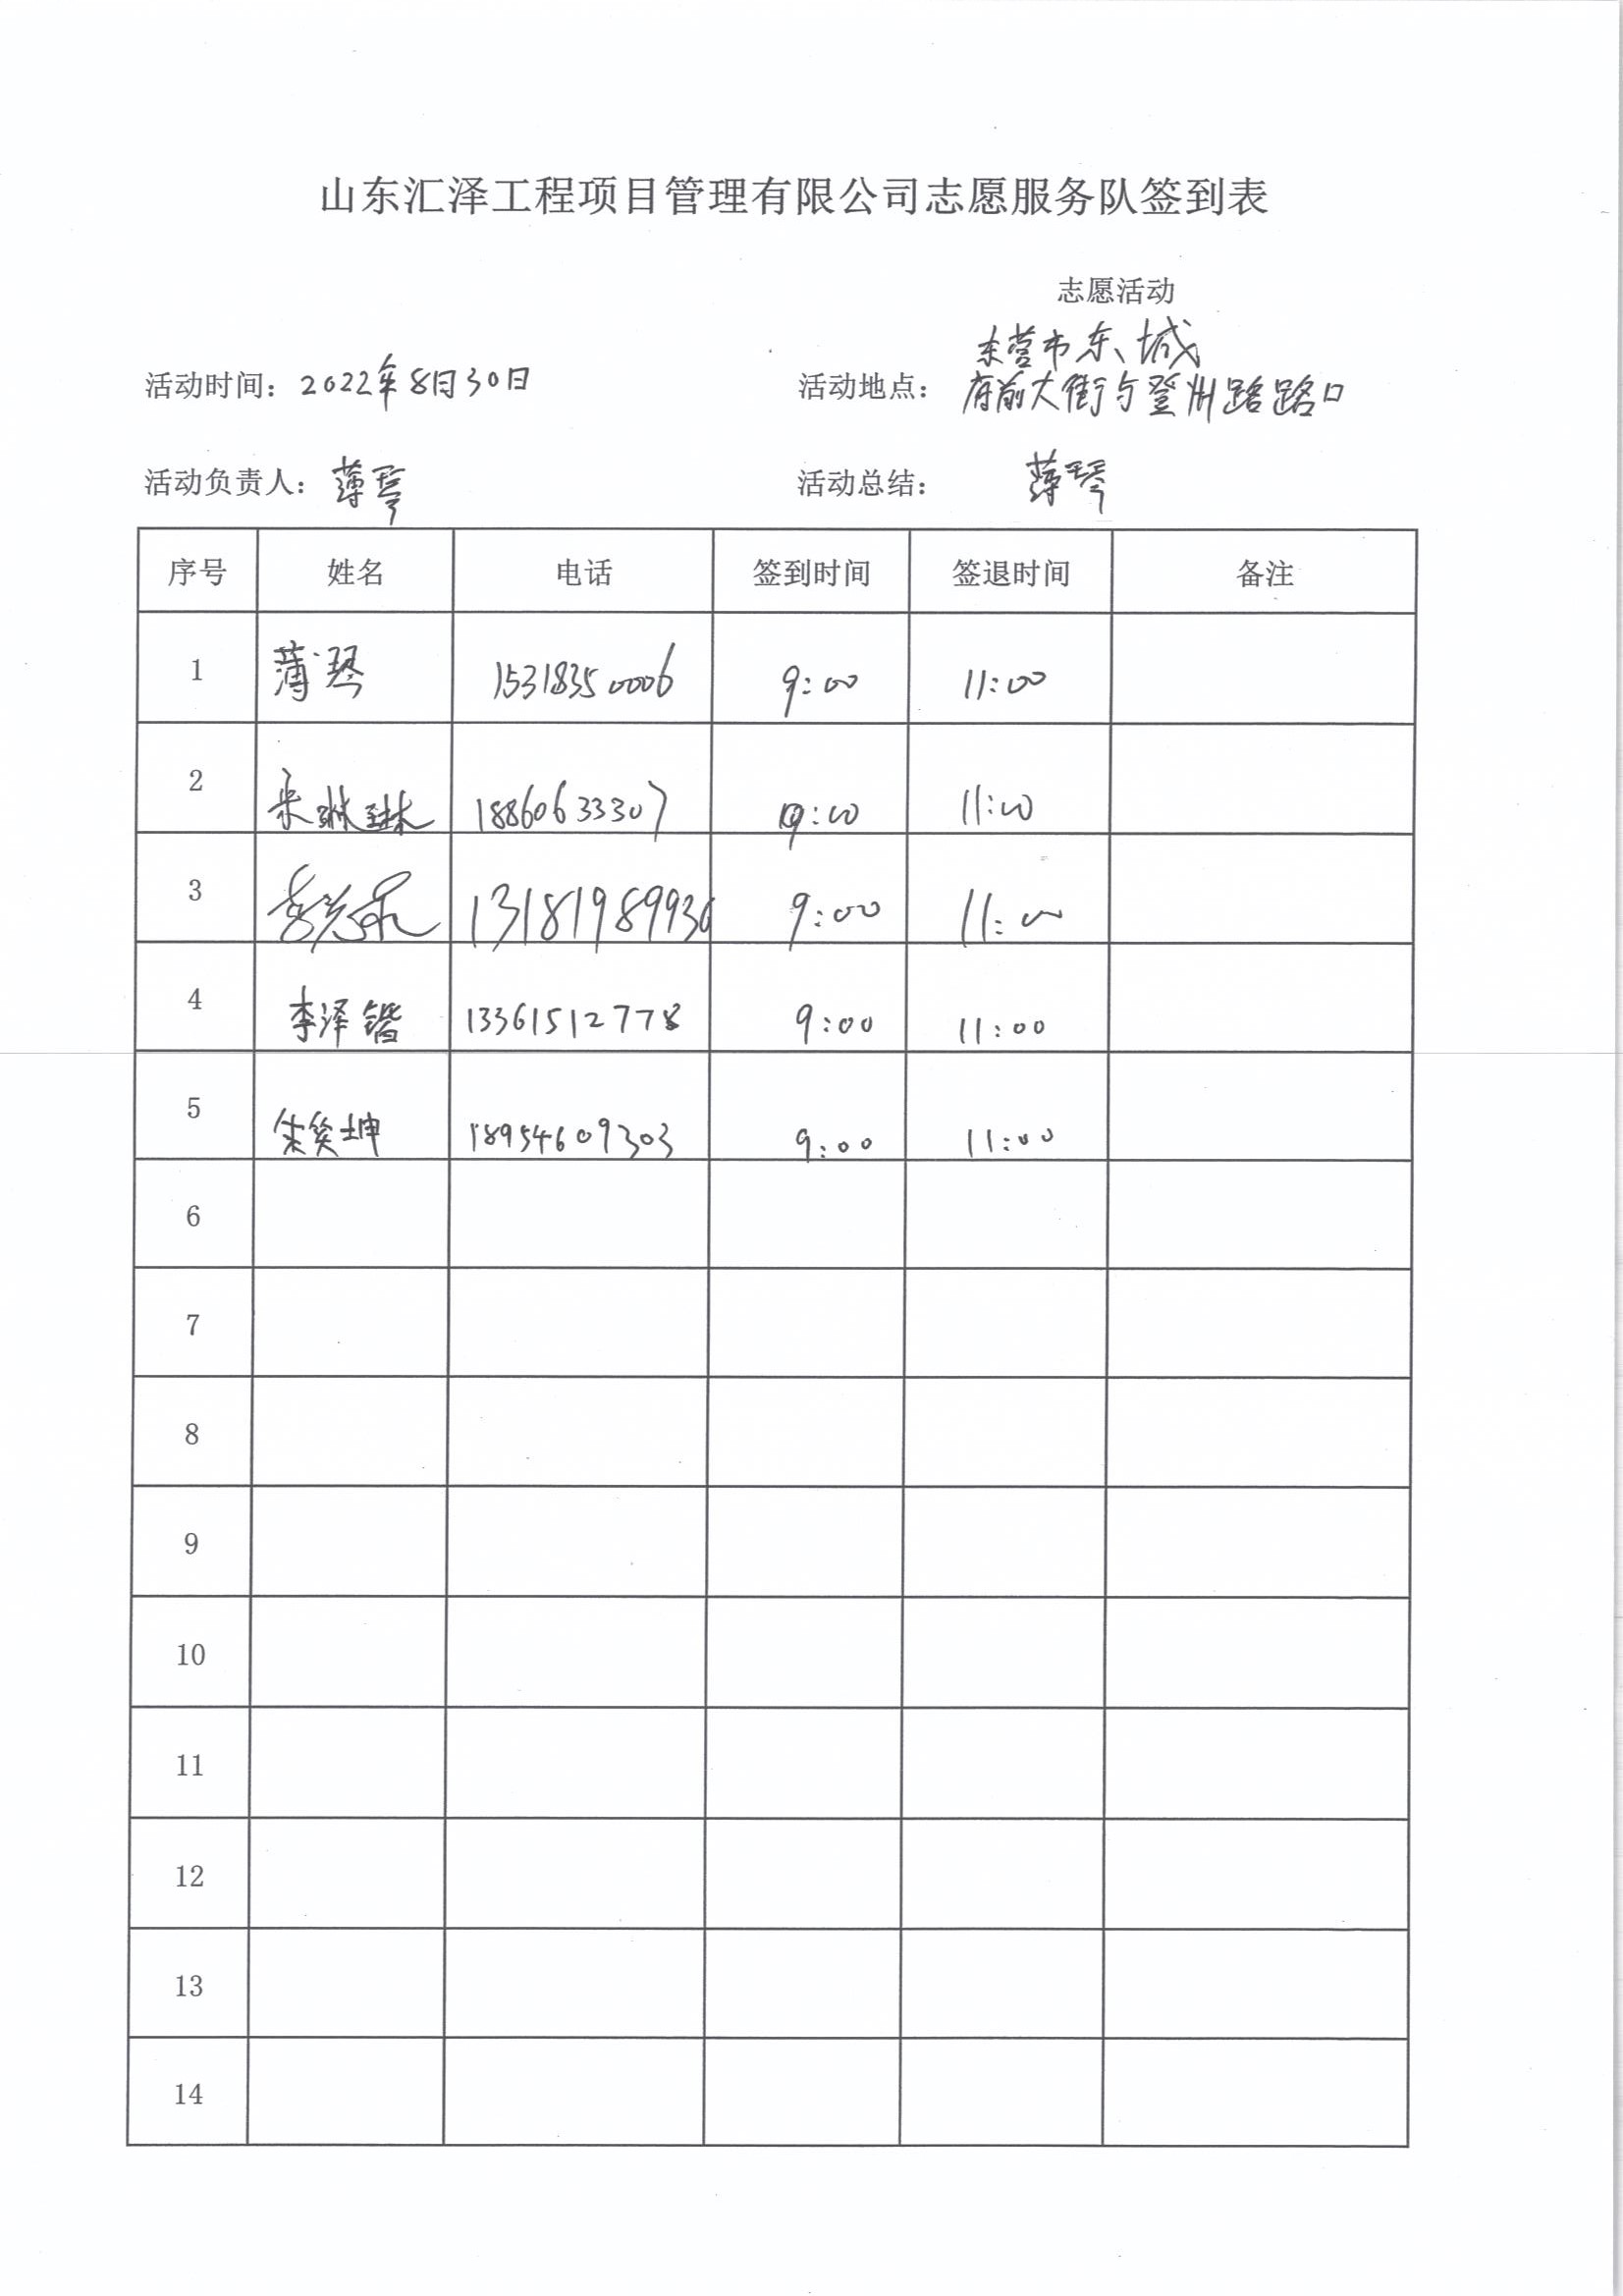 山东汇泽工程项目管理有限公司志愿服务队签到表
志愿活动
东营市东城
活动时间：2022年8月30日 活动地点：府前大街与登州路路口
活动负责人：薄琴 活动总结：薄琴
序号 姓名 电话 签到时间 签退时间 备注
1 薄琴 15318350006 9:00 11:00
2 宋琳琳 18860633307 9:00 11:00
3 13181989936 9:00 11:00
4 李泽锴 13361512778 9:00 11:00
5 朱笑坤 18954609303 9:00 11:00
6
7
8
9
10
11
12
13
14